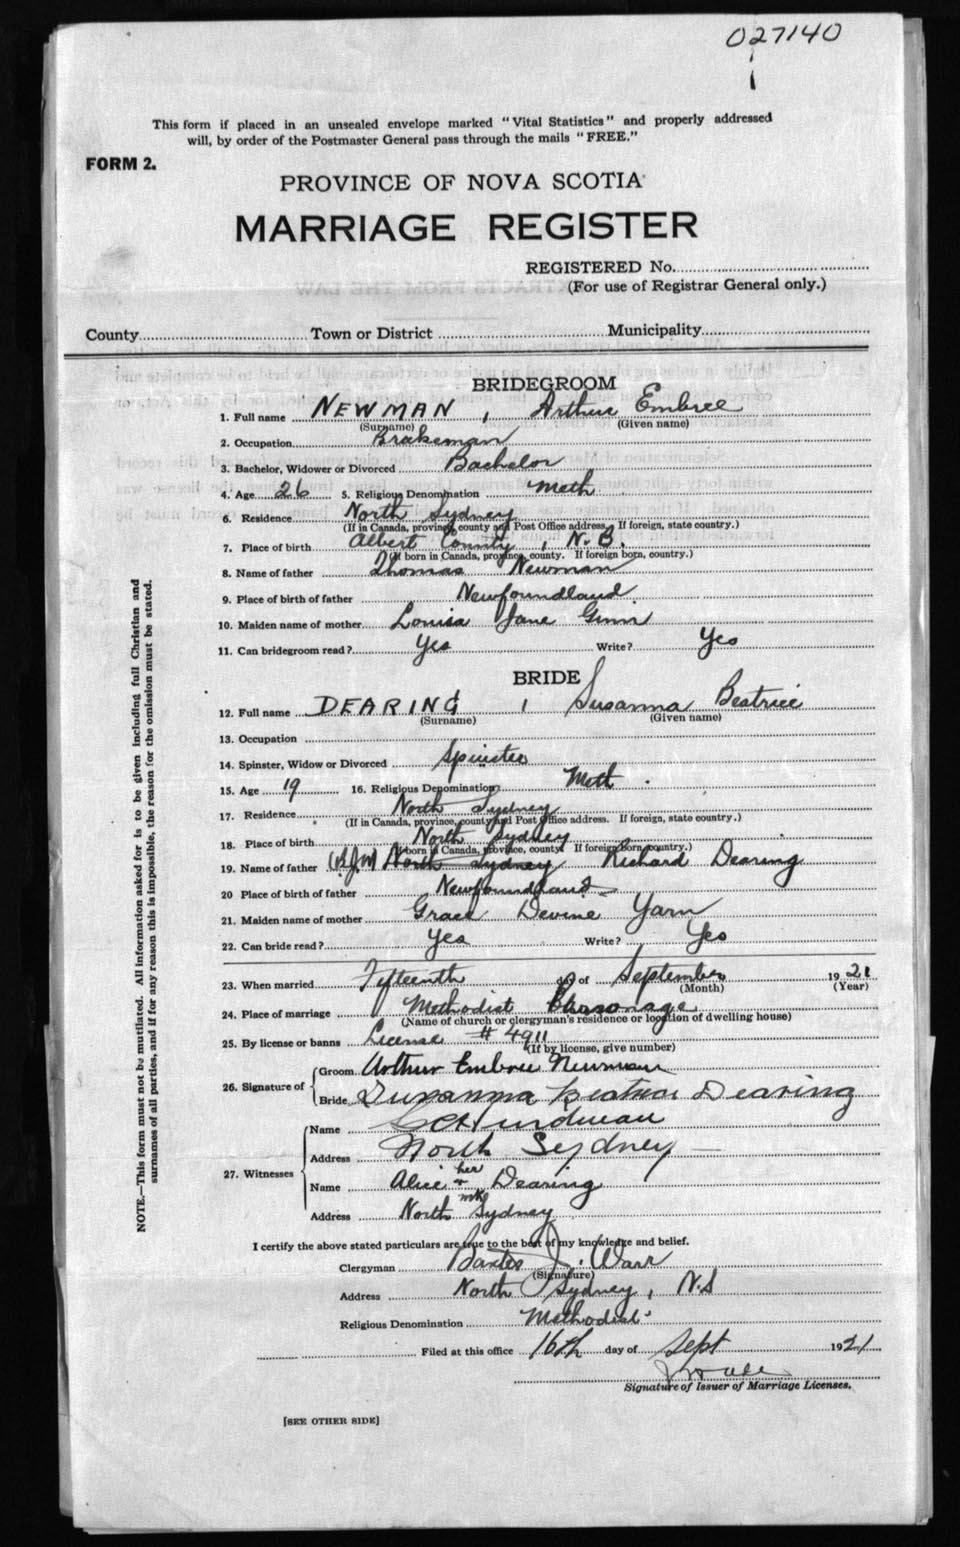 027140
This form if placed in an unsealed envelope marked "Vital Statistics" and properly addressed
will, by order of the Postmaster General pass through the mails "FREE."
FORM 2.
PROVINCE OF NOVA SCOTIA
MARRIAGE REGISTER
REGISTERED No.
(For use of Registrar General only.)
County Town or District Municipality
BRIDEGROOM
1. Full name NEWMAN, Arthur Embree
(Surname) (Given name)
2. Occupation Brakeman
3. Bachelor, Widower or Divorced Bachelor
4. Age 26 5. Religious Denomination Meth
6. Residence North Sydney
(If in Canada, province, county and Post Office address. If foreign, state country.)
7. Place of birth Albert County, N.B.
(If born in Canada, province, county. If foreign born, country.)
8. Name of father Thomas Newman
9. Place of birth of father Newfoundland
10. Maiden name of mother Louisa Jane Ginn
11. Can bridegroom read? Yes Write? Yes
BRIDE
12. Full name DEARING, Susanna Beatrice
(Surname) (Given name)
13. Occupation
14. Spinster, Widow or Divorced Spinster
15. Age 19 16. Religious Denomination Meth.
17. Residence North Sydney
(If in Canada, province, county and Post Office address. If foreign, state country.)
18. Place of birth North Sydney
(If born in Canada, province, county. If foreign born, country.)
19. Name of father North Sydney Richard Dearing
20 Place of birth of father Newfoundland
21. Maiden name of mother Grace Devine Yarn
22. Can bride read? Yes Write? Yes
23. When married Fifteenth day of September 1921
(Month) (Year)
24. Place of marriage Methodist Parsonage
(Name of church or clergyman's residence or location of dwelling house)
25. By license or banns License # 4911
(If by license, give number)
26. Signature of
Groom Arthur Embree Newman
Bride Susanna Beatrice Dearing
27. Witnesses
Name
Address North Sydney
Name Alice her x mk Dearing
Address North Sydney
I certify the above stated particulars are true to the best of my knowledge and belief.
Clergyman Baxter J. Warr
(Signature)
Address North Sydney, N.S
Religious Denomination Methodist
Filed at this office 16th day of Sept 1921
Signature of Issuer of Marriage Licenses.
[SEE OTHER SIDE]
NOTE.—This form must not be mutilated. All information asked for is to be given including full Christian and
surnames of all parties, and if for any reason this is impossible, the reason for the omission must be stated.